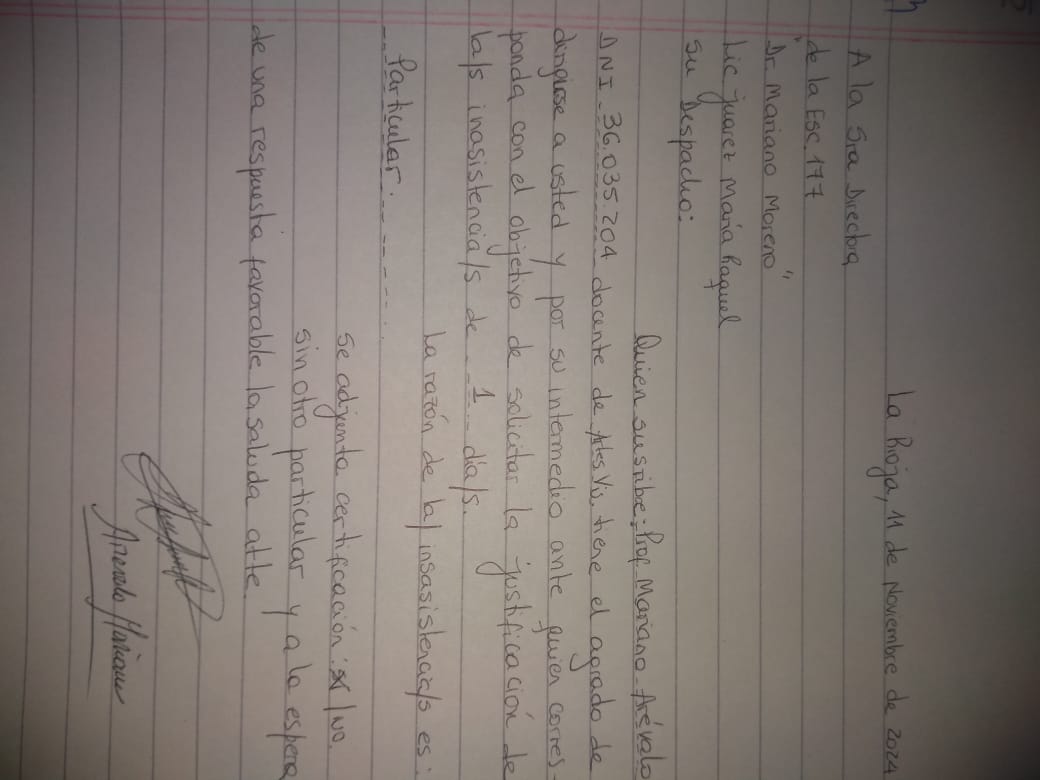 La Rioja, 11 de Noviembre de 2024
A la Sra Directora
de la Esc. 177
"Dr. Mariano Moreno"
Lic Juarez María Raquel
Su Despacho:
Quien suscribe: Prof. Mariano Arévalo
DNI. 36.035204 docente de Artes Vis. tiene el agrado de
dirigirse a usted y por su intermedio ante quien corres-
ponda con el objetivo de solicitar la justificación de
la/s inasistencia/s de 1 día/s.
La razón de la/ insasistencia/s es:
Particular.
Se adjunta certificación: SI/NO.
Sin otro particular y a la espera
de una respuesta favorable la saluda atte.
Arevalo Mariano